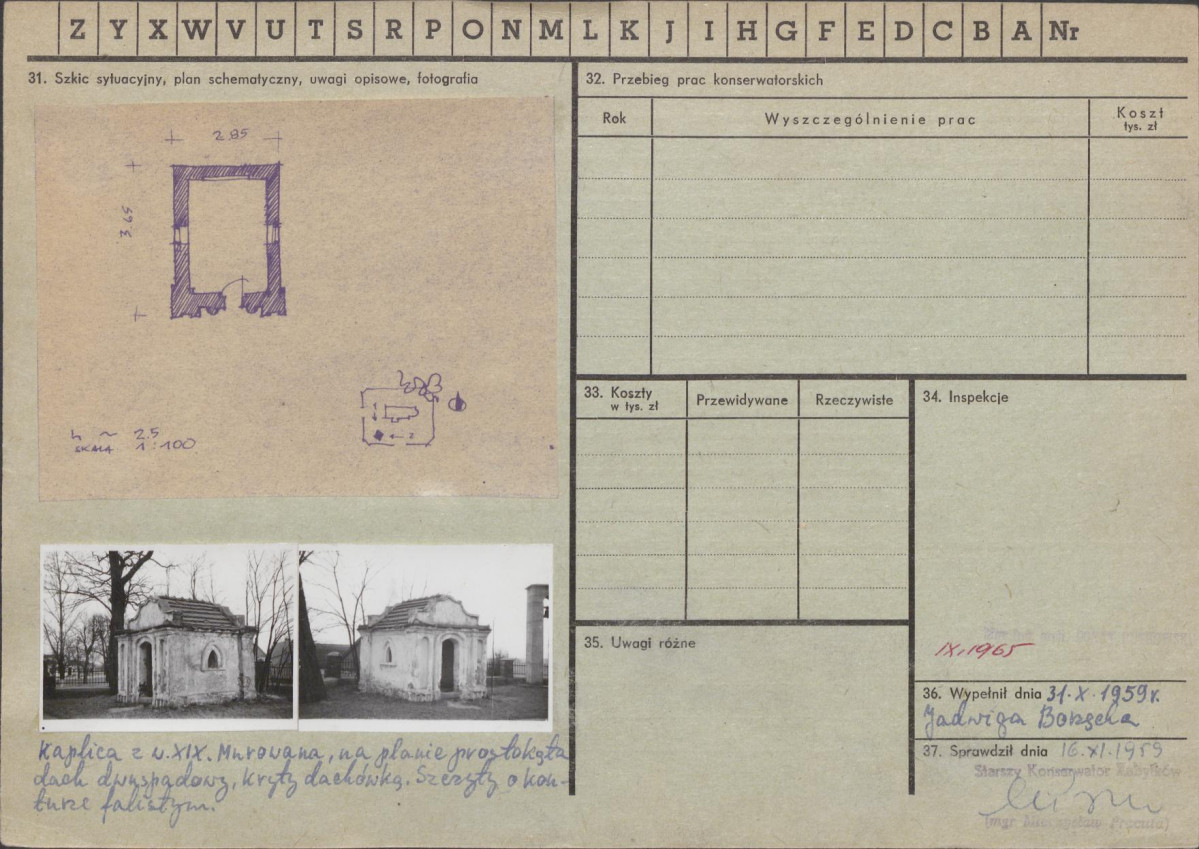 Z Y X W V U T S R P O N M L K J I H G F E D C B A Nr
31. Szkic sytuacyjny, plan schematyczny, uwagi opisowe, fotografia
2.85
3.65
h ~ 2.5
SKALA 1:100
Kaplica z w. XIX. Murowana, na planie prostokąta
dach dwuspadowy, kryty dachówką. Szczyty o kon-
turze falistym.
32. Przebieg prac konserwatorskich
Rok Wyszczególnienie prac Koszt
tys. zł
33. Koszty
w tys. zł
Przewidywane Rzeczywiste
34. Inspekcje
IX.1965
35. Uwagi różne
36. Wypełnił dnia 31.X.1959r.
Jadwiga
37. Sprawdził dnia 16.XI.1959
Starszy Konserwator Zabytków
(mgr Mieczysław Procuta)